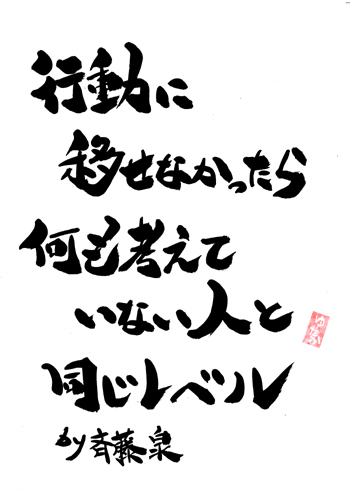 行動に
移せなかったら
何も考えて
いない人と
同じレベル
by斉藤泉